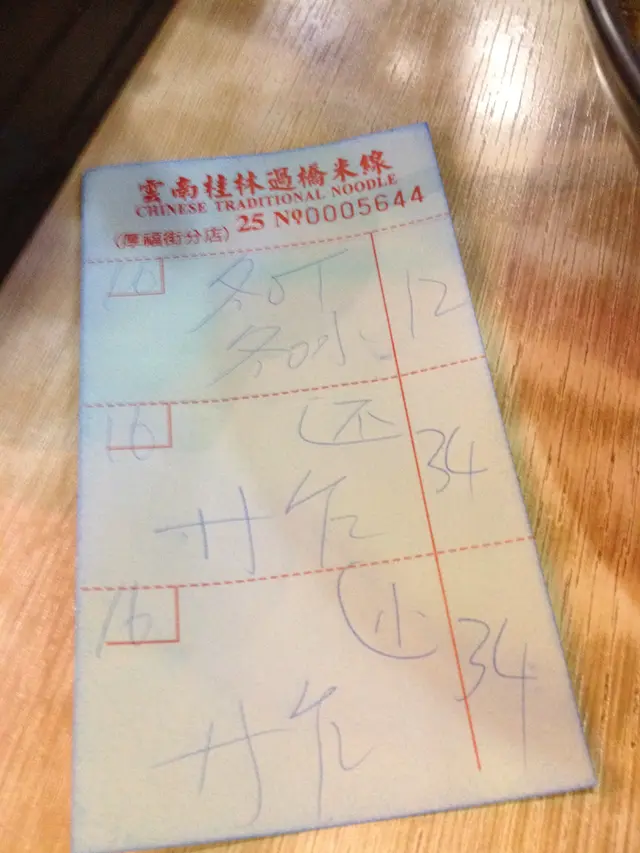 雲南桂林過橋米線
CHINESE TRADITIONAL NOODLE
(厚福街分店) 25 No 0005644
16
冬OT 12
冬O小
16
不 34
廾乍
16
小 34
廾乍